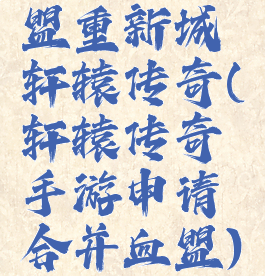 盟重新城
轩辕传奇(
轩辕传奇
手游申请
合并血盟)